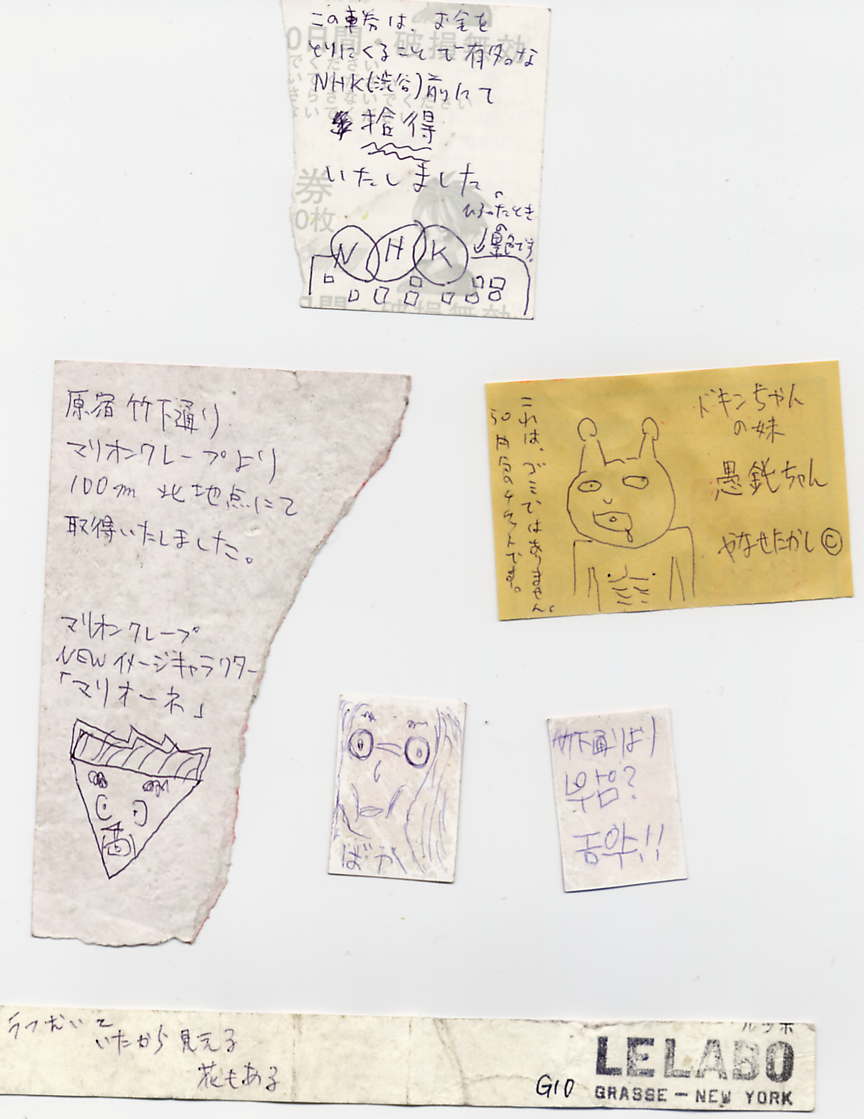 この車券は、お金を
とりにくることで有名な
NHK(渋谷)前にて
拾得
いたしました。
ひろったとき
です。
N H K
0日間・破損無効
券
0枚
原宿 竹下通り
マリオンクレープより
100m 北地点にて
取得いたしました。
マリオンクレープ
NEWイメージキャラクター
「マリオーネ」
ドキンちゃん
の妹
愚鈍ちゃん
やなせたかし©
これは、ゴミではありません。
50円分のチケットです。
ばか
竹下通りより
うつむいて
いたから見える
花もある
G10
ルラボ
LE LABO
GRASSE – NEW YORK